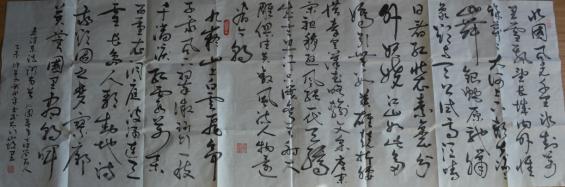 北国风光千里冰封万
里雪飘望长城内外惟
余莽莽大河上下顿失滔
滔山舞银蛇原驰蜡
象欲与天公试比高须晴
日看红装素裹分
外妖娆江山如此多
娇引无数英雄竞折腰
惜秦皇汉武略输文采唐宗
宋祖稍逊风骚一代天骄
成吉思汗只识弯弓射大
雕俱往矣数风流人物还
看今朝
九嶷山上白云飞帝
子乘风下翠微斑竹一枝
千滴泪红霞万朵
百重衣洞庭波涌连天
雪长岛人歌动地诗
我欲因之梦寥廓
芙蓉国里尽朝晖